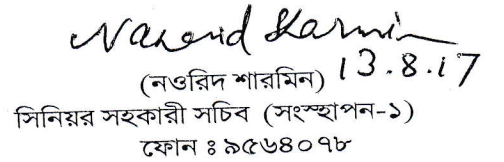 Naorid Sarmin
13.8.17
(নওরিদ শারমিন)
সিনিয়র সহকারী সচিব (সংস্হাপন-১)
ফোন ঃ ৯৫৬৪০৭৮